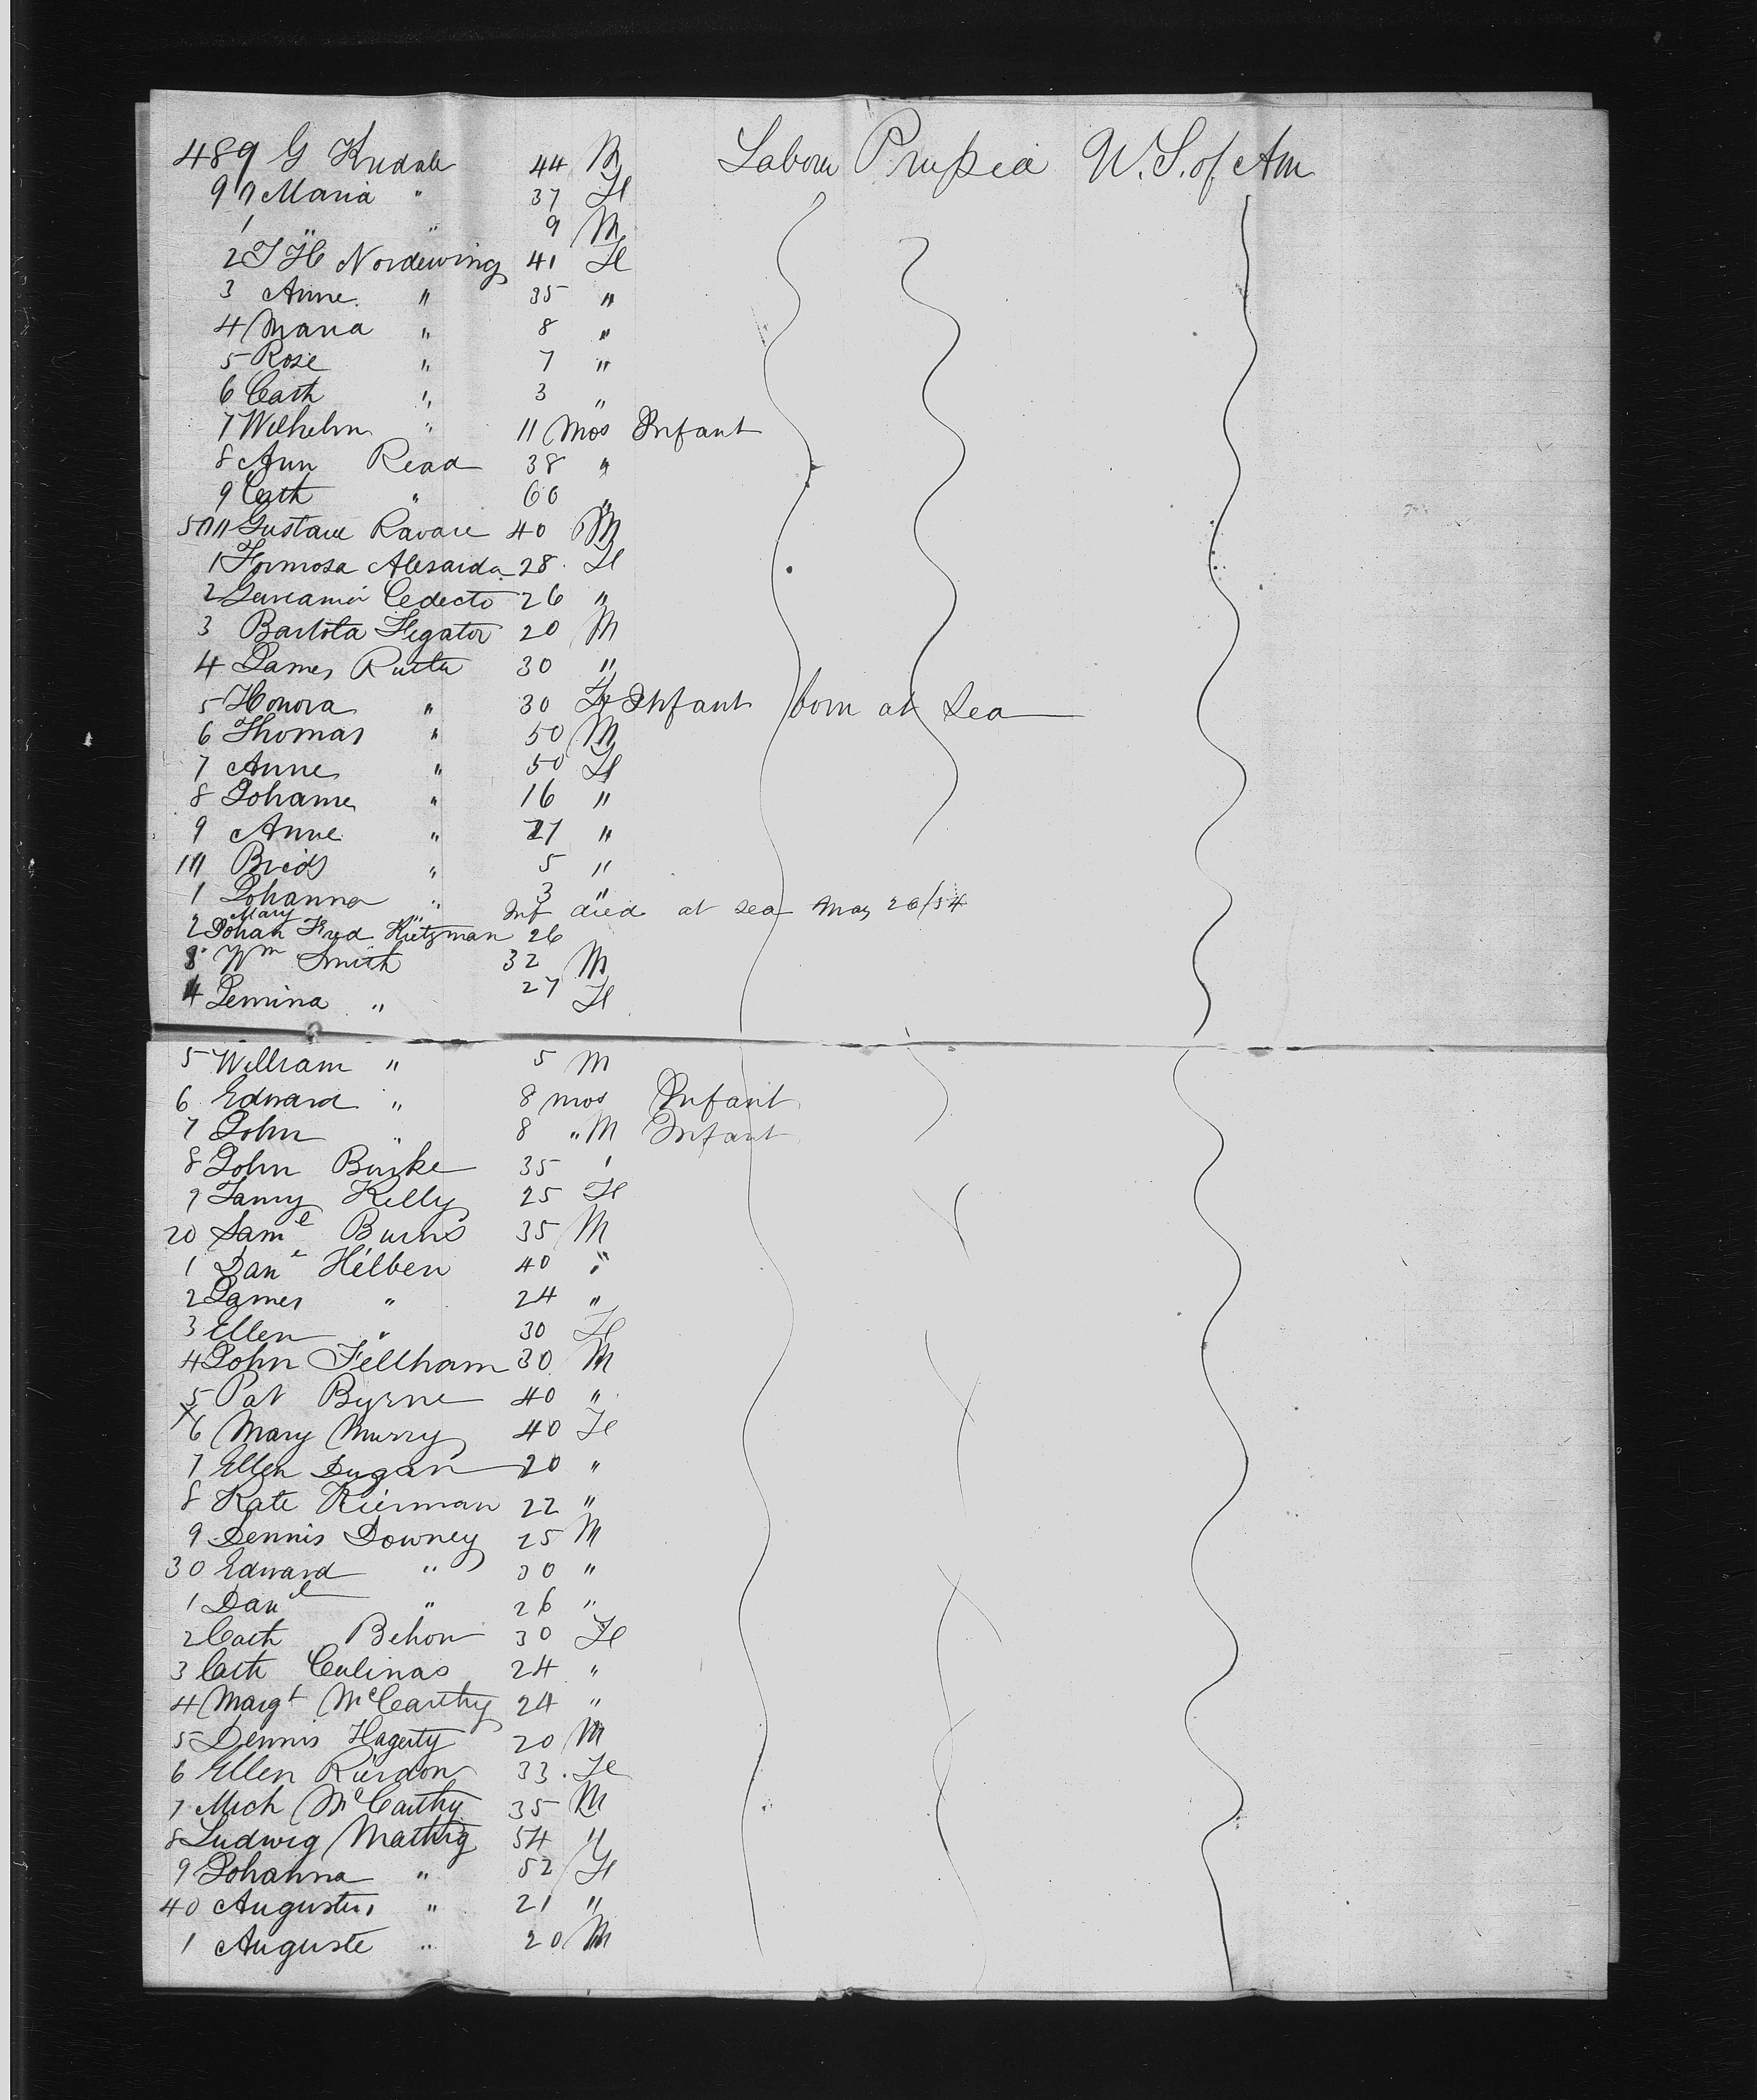 489 G Krudale 44 M Labour Prussia U.S. of Am
90 Maria " 37 F
1 " " 9 M
2 J H Nordewing 41 F
3 Anne " 35 "
4 Maria " 8 "
5 Rose " 7 "
6 Cath " 3 "
7 Wilhelm " 11 mos Infant
8 Ann Read 38 "
9 Cath " 60 "
500 Gustave Ravare 40 M
1 Formosa 28 F
2 Cedecto 26 "
3 Bartola Fegator 20 M
4 James 30 "
5 Honora " 30 F Infant born at Sea
6 Thomas " 50 M
7 Anne " 50 F
8 Johanne " 16 "
9 Anne " "
10 Brid " 5 "
1 Johanna " 3 "
Mary " Inf died at sea May 20/54
2 Johan Fred Kietzman 26
3 Wm Smith 32 M
4 Jemina " 27 F
5 William " 5 M
6 Edward " 8 mos Infant
7 John " 8 " M Infant
8 John Burke 35 '
9 Fanny Kelly 25 F
20 Saml Burns 35 M
1 Danl Hilben 40 "
2 James " 24 "
3 Ellen " 30 F
4 John Fellham 30 M
5 Pat Byrne 40 "
x6 Mary Murry 40 F
7 Ellen Dugan 20 "
8 Kate Kiernan 22 "
9 Dennis Downey 25 M
30 Edward " 30 "
1 Danl " 26 "
2 Cath Behon 30 F
3 Cath Culinas 24 "
4 Margt McCarthy 24 "
5 Dennis Hagerty 20 M
6 Ellen Riordon 33 F
7 Mich McCarthy 35 M
8 Ludwig Mathig 54 "
9 Johanna " 52 F
40 Augustus " 21 "
1 Auguste " 20 M